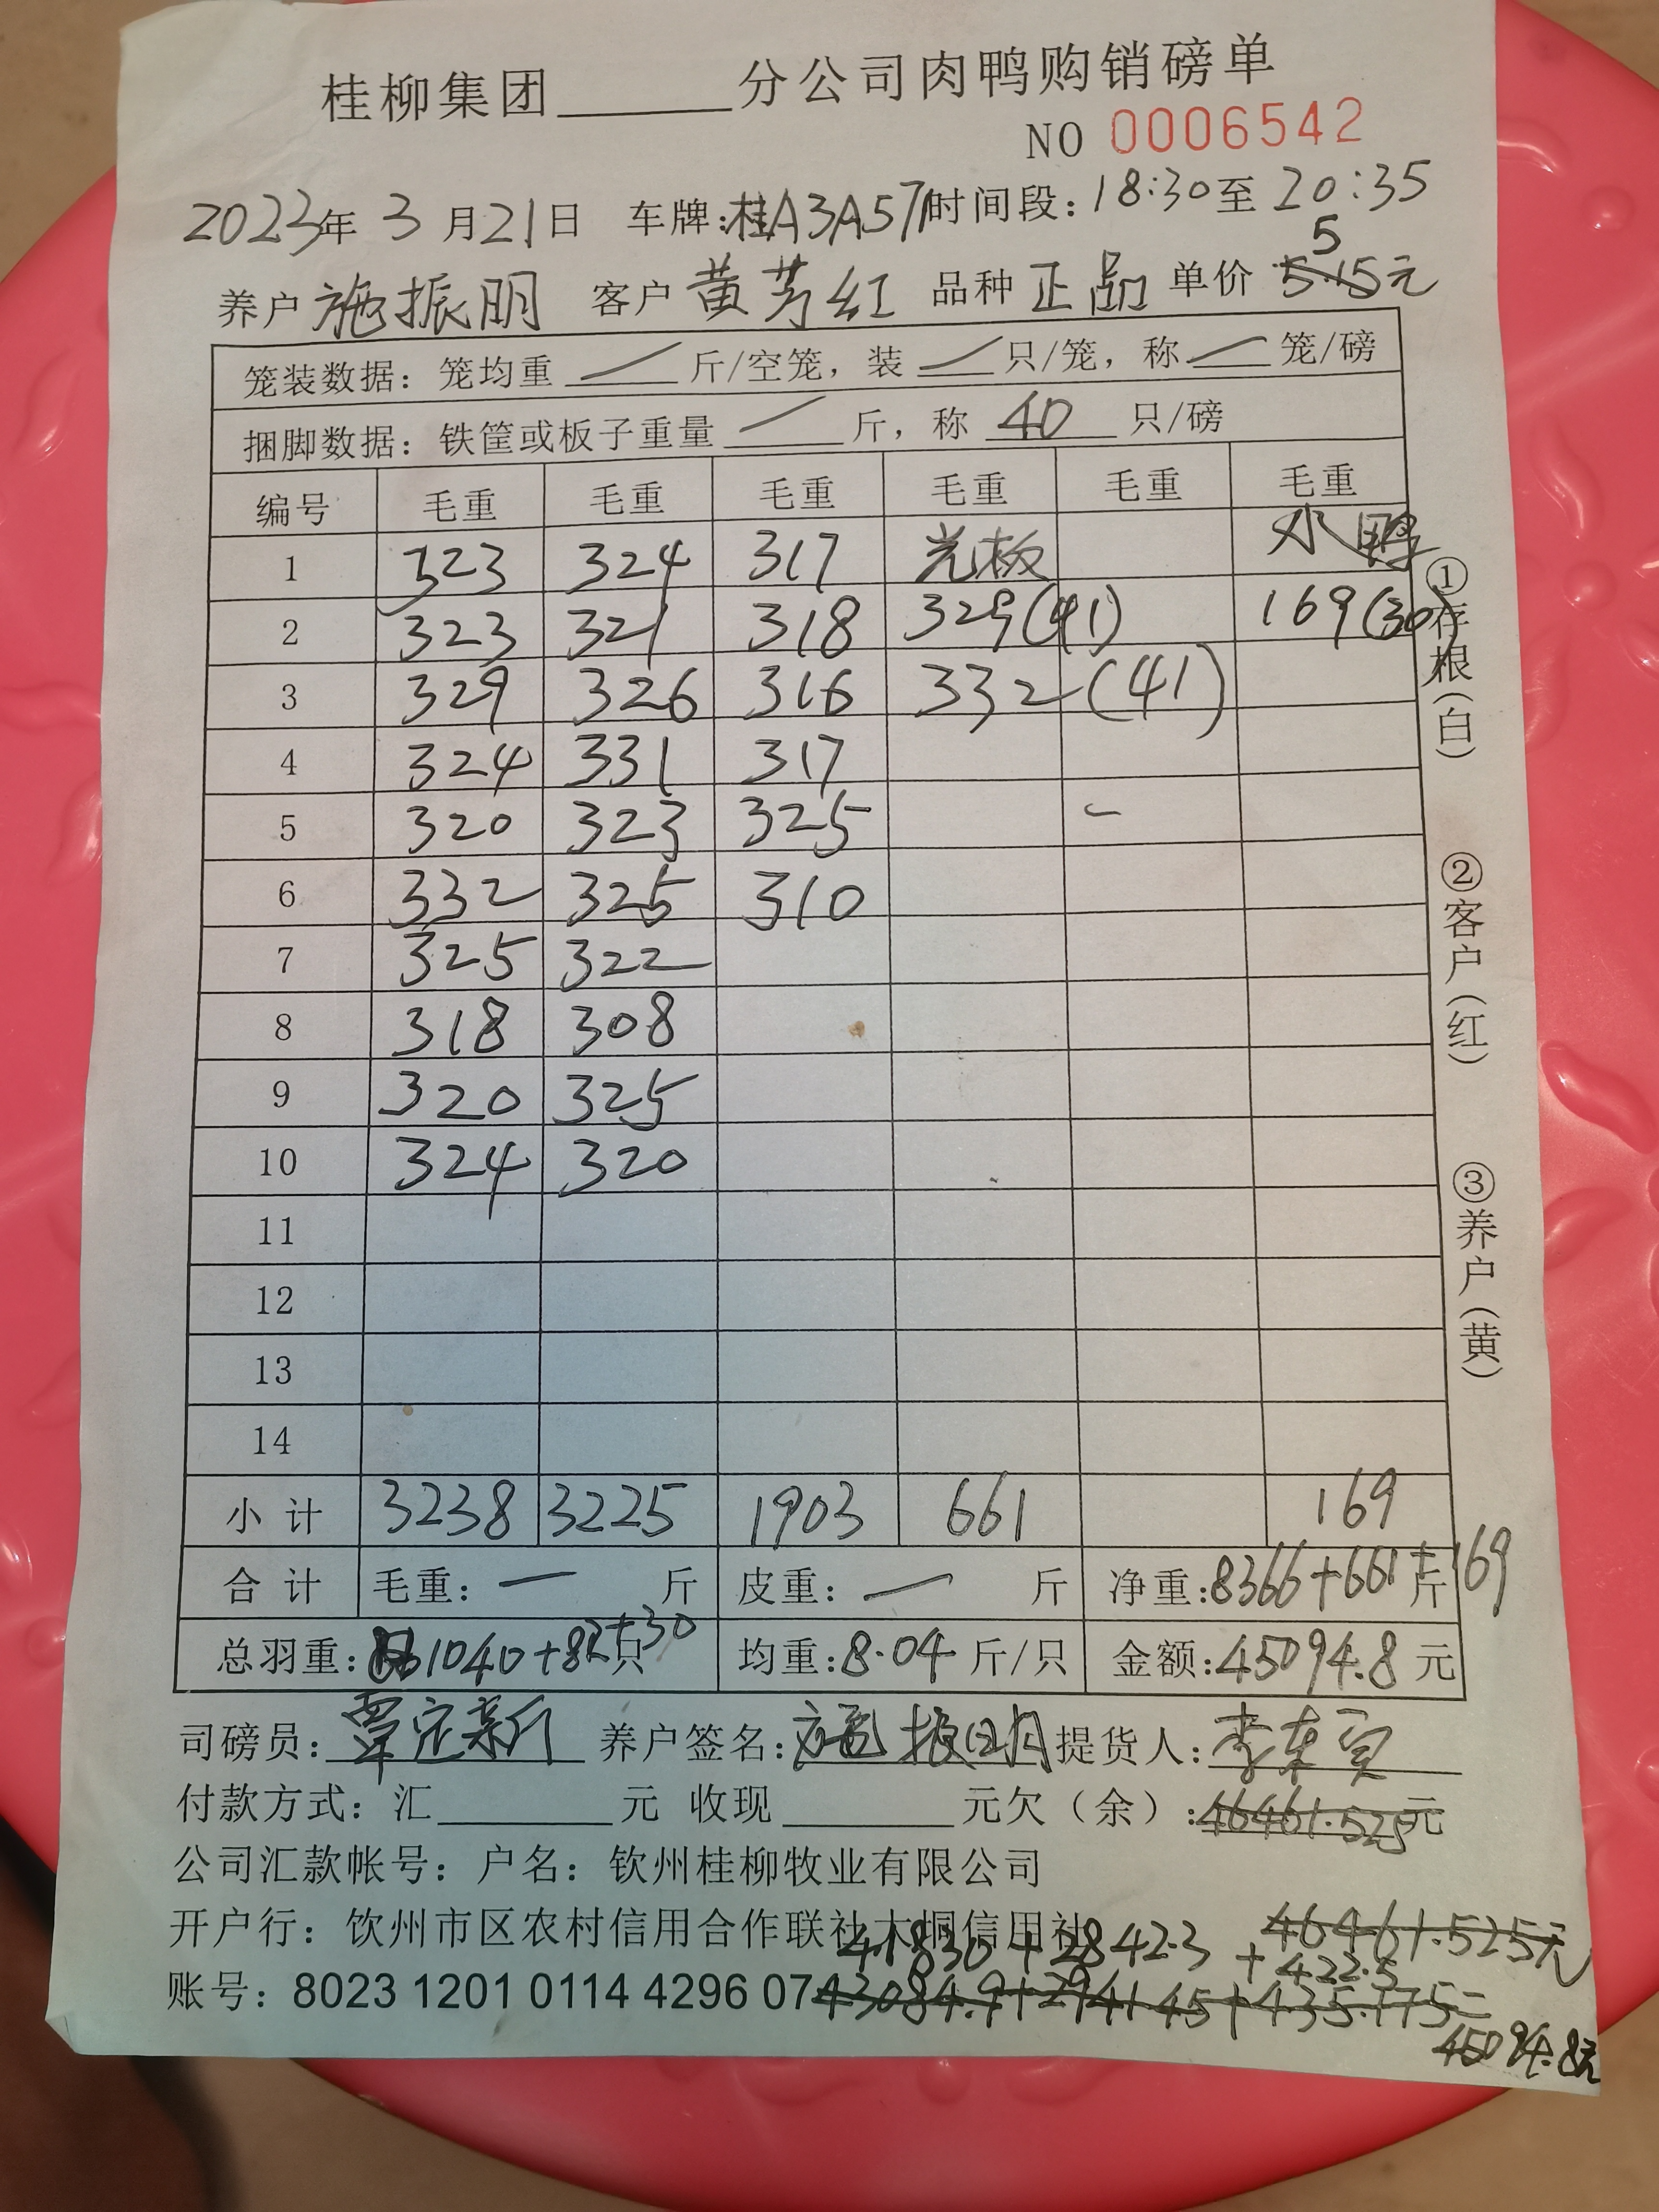 桂柳集团______分公司肉鸭购销磅单
NO 0006542
2023年 3 月21日 车牌:桂A3A571时间段:18:30至20:35
5
养户 施振明 客户 黄芳红 品种 正品 单价 5.15元
笼装数据: 笼均重 / 斤/空笼, 装 / 只/笼, 称 / 笼/磅
捆脚数据: 铁筐或板子重量 / 斤, 称 40 只/磅
编号 毛重 毛重 毛重 毛重 毛重 毛重
1 323 324 317 光板 小鸭
2 323 321 318 329(41) 169(30)
3 329 326 316 332 (41)
4 324 331 317
5 320 323 325
6 332 325 310
7 325 322
8 318 308
9 320 325
10 324 320
11
12
13
14
小 计 3238 3225 1903 661 169
合 计 毛重: — 斤 皮重: — 斤 净重:8366+661+169 斤
总羽重: 1040+82+30 只 均重:8.04 斤/只 金额:45094.8 元
司磅员: 覃定新 养户签名: 施振明 提货人: 李东
付款方式: 汇______元 收现______元欠(余):46461.525元
公司汇款帐号: 户名: 钦州桂柳牧业有限公司
开户行: 钦州市区农村信用合作联社大榈信用社 46461.525元
41830+2842.3 +422.5
账号: 8023 1201 0114 4296 07 43084.9+2941.45+435.175=
45094.8元
①存根(白)
②客户(红)
③养户(黄)